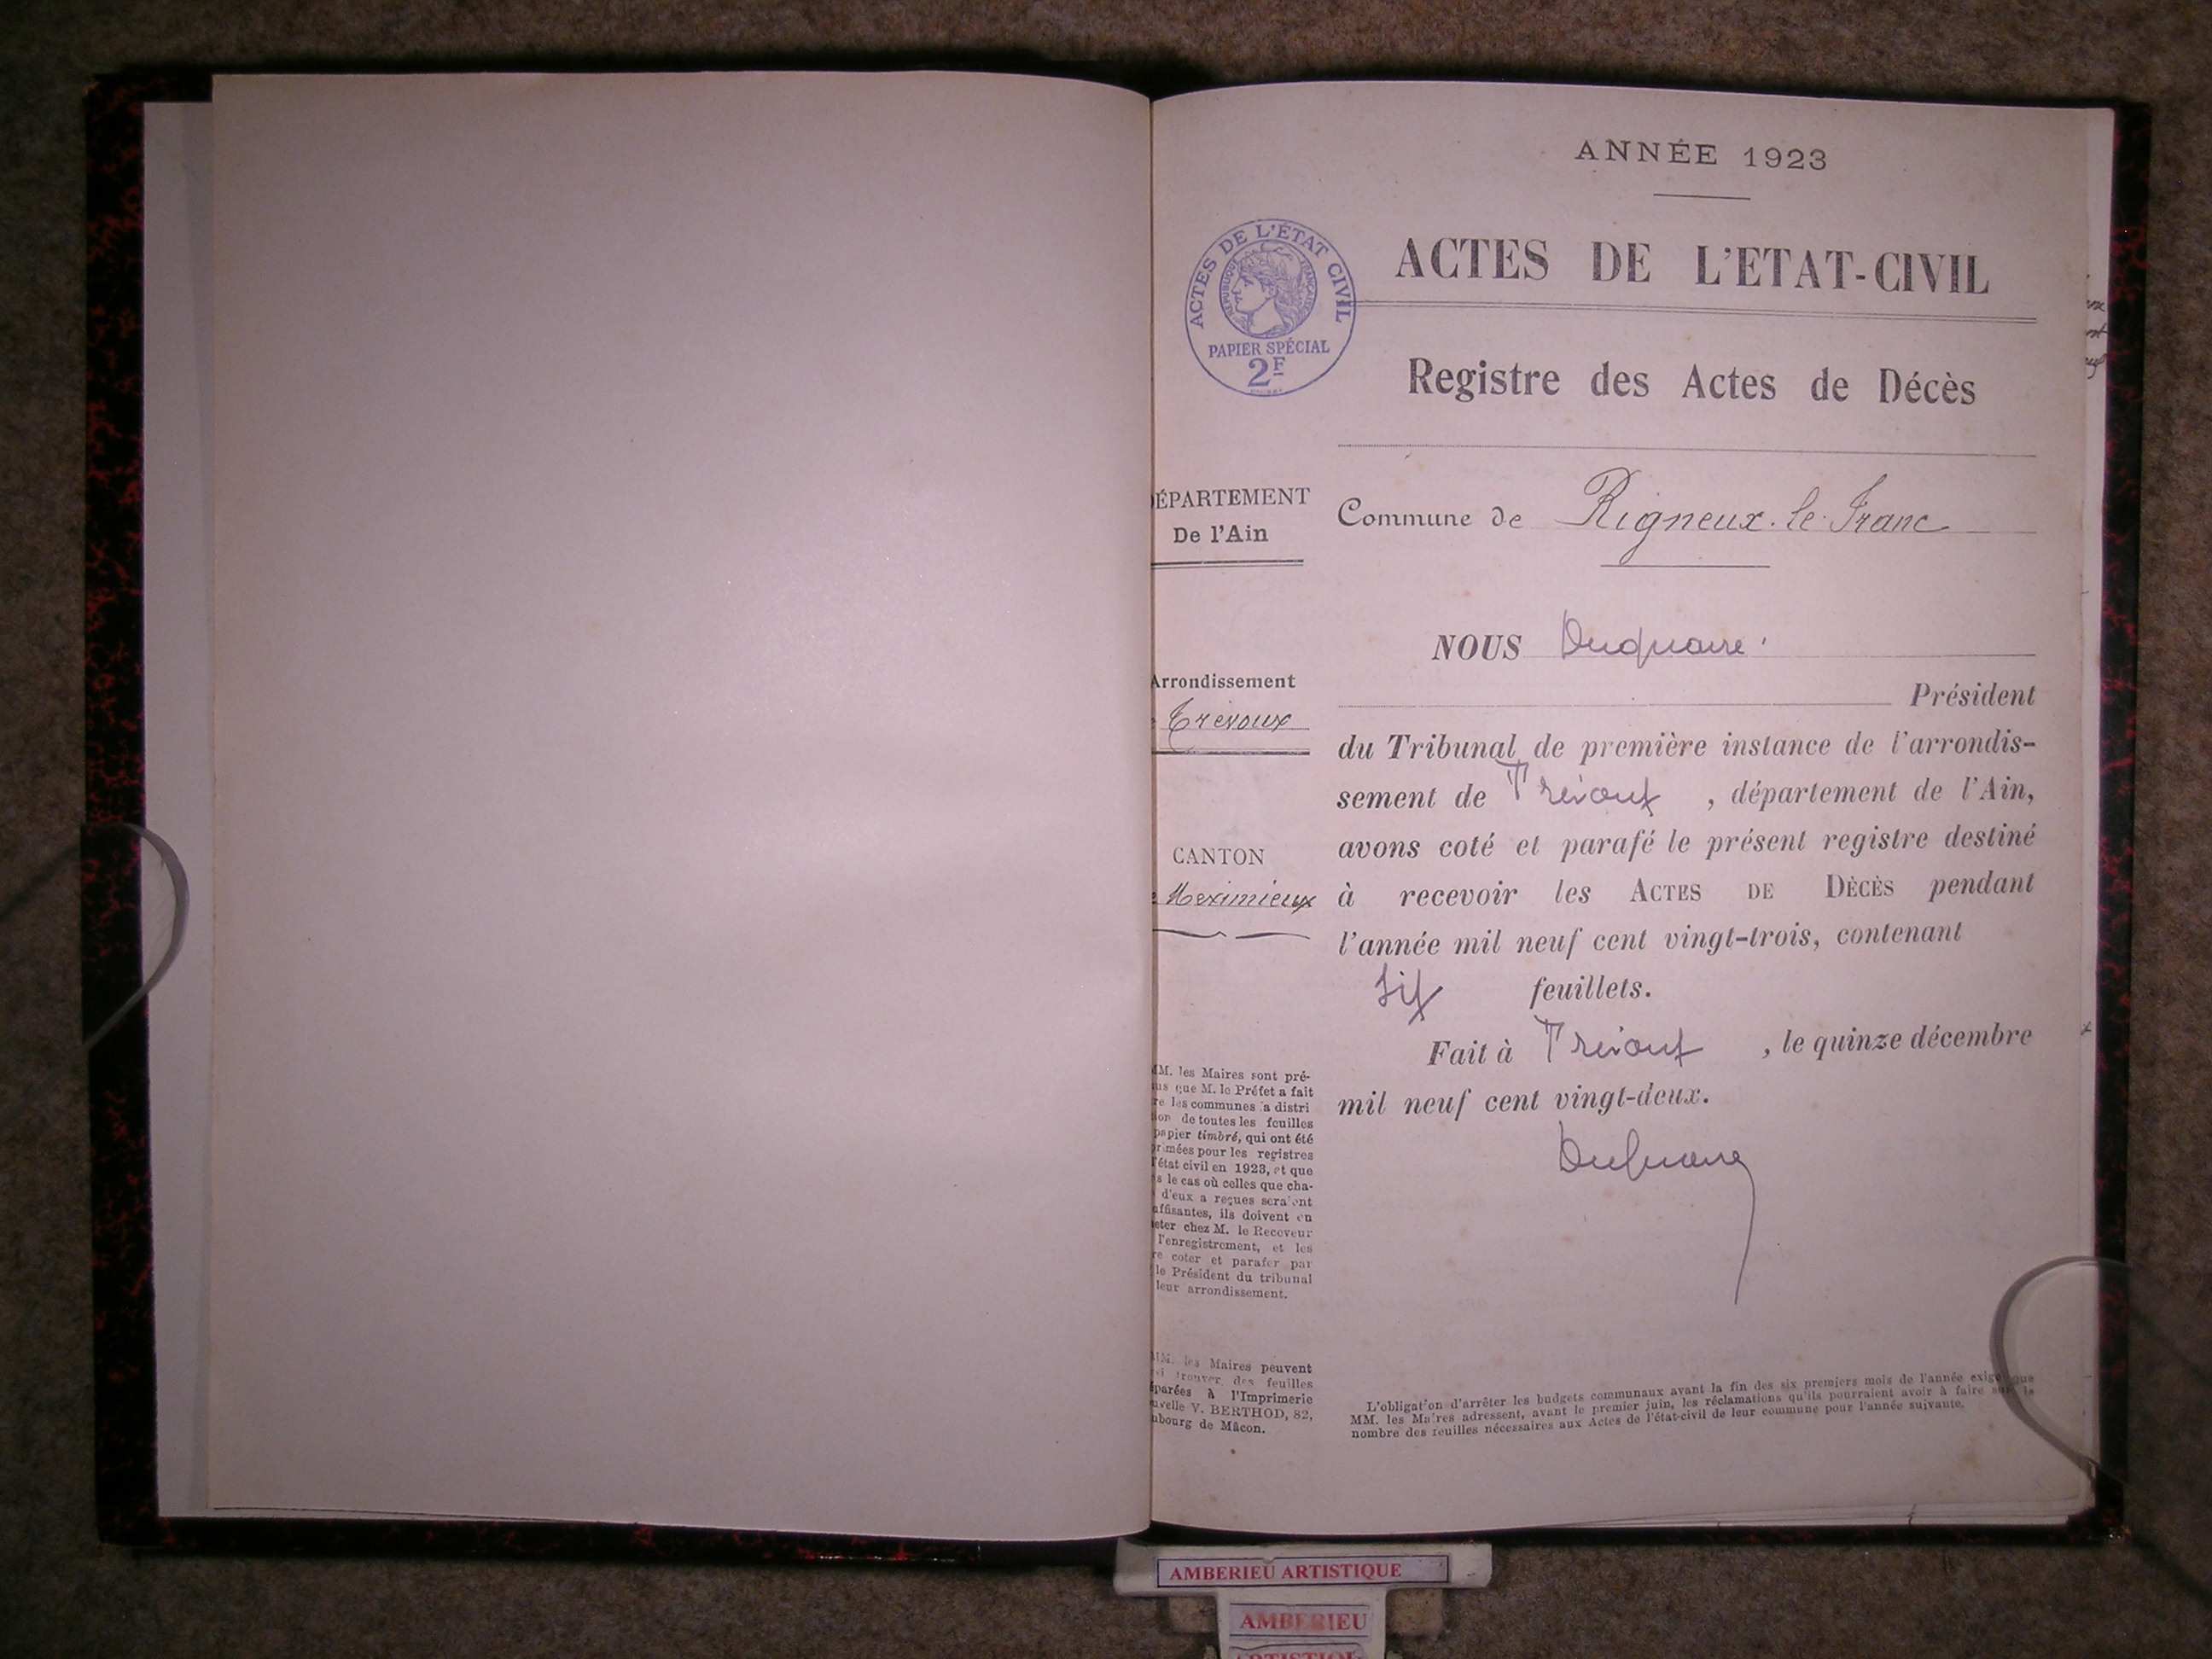 ANNÉE 1923
ACTES DE L'ÉTAT CIVIL
RÉPUBLIQUE FRANÇAISE
PAPIER SPÉCIAL
2F
ACTES DE L'ETAT-CIVIL
Registre des Actes de Décès
ÉPARTEMENT
De l'Ain
Commune de Rigneux-le-Franc
NOUS Duquaire
Arrondissement
Trévoux
Président
du Tribunal de première instance de l'arrondis-
sement de Trévoux, département de l'Ain,
avons coté et parafé le présent registre destiné
CANTON
Meximieux
à recevoir les ACTES DE DÈCÈS pendant
l'année mil neuf cent vingt-trois, contenant
six feuillets.
Fait à Trévoux, le quinze décembre
mil neuf cent vingt-deux.
Duquaire
MM. les Maires sont pré-
us que M. le Préfet a fait
re les communes la distri
ion de toutes les feuilles
papier timbré, qui ont été
rimées pour les registres
l'état civil en 1923, et que
s le cas où celles que cha-
d'eux a reçues seraient
uffisantes, ils doivent en
eter chez M. le Receveur
l'enregistrement, et les
re coter et parafer par
le Président du tribunal
leur arrondissement.
MM. les Maires peuvent
trouver des feuilles
éparées à l'Imprimerie
uvelle V. BERTHOD, 82,
ubourg de Mâcon.
L'obligation d'arrêter les budgets communaux avant la fin des six premiers mois de l'année exige que
MM. les Maires adressent, avant le premier juin, les réclamations qu'ils pourraient avoir à faire sur le
nombre des feuilles nécessaires aux Actes de l'état-civil de leur commune pour l'année suivante.
AMBERIEU ARTISTIQUE
AMBERIEU
ARTISTIQUE